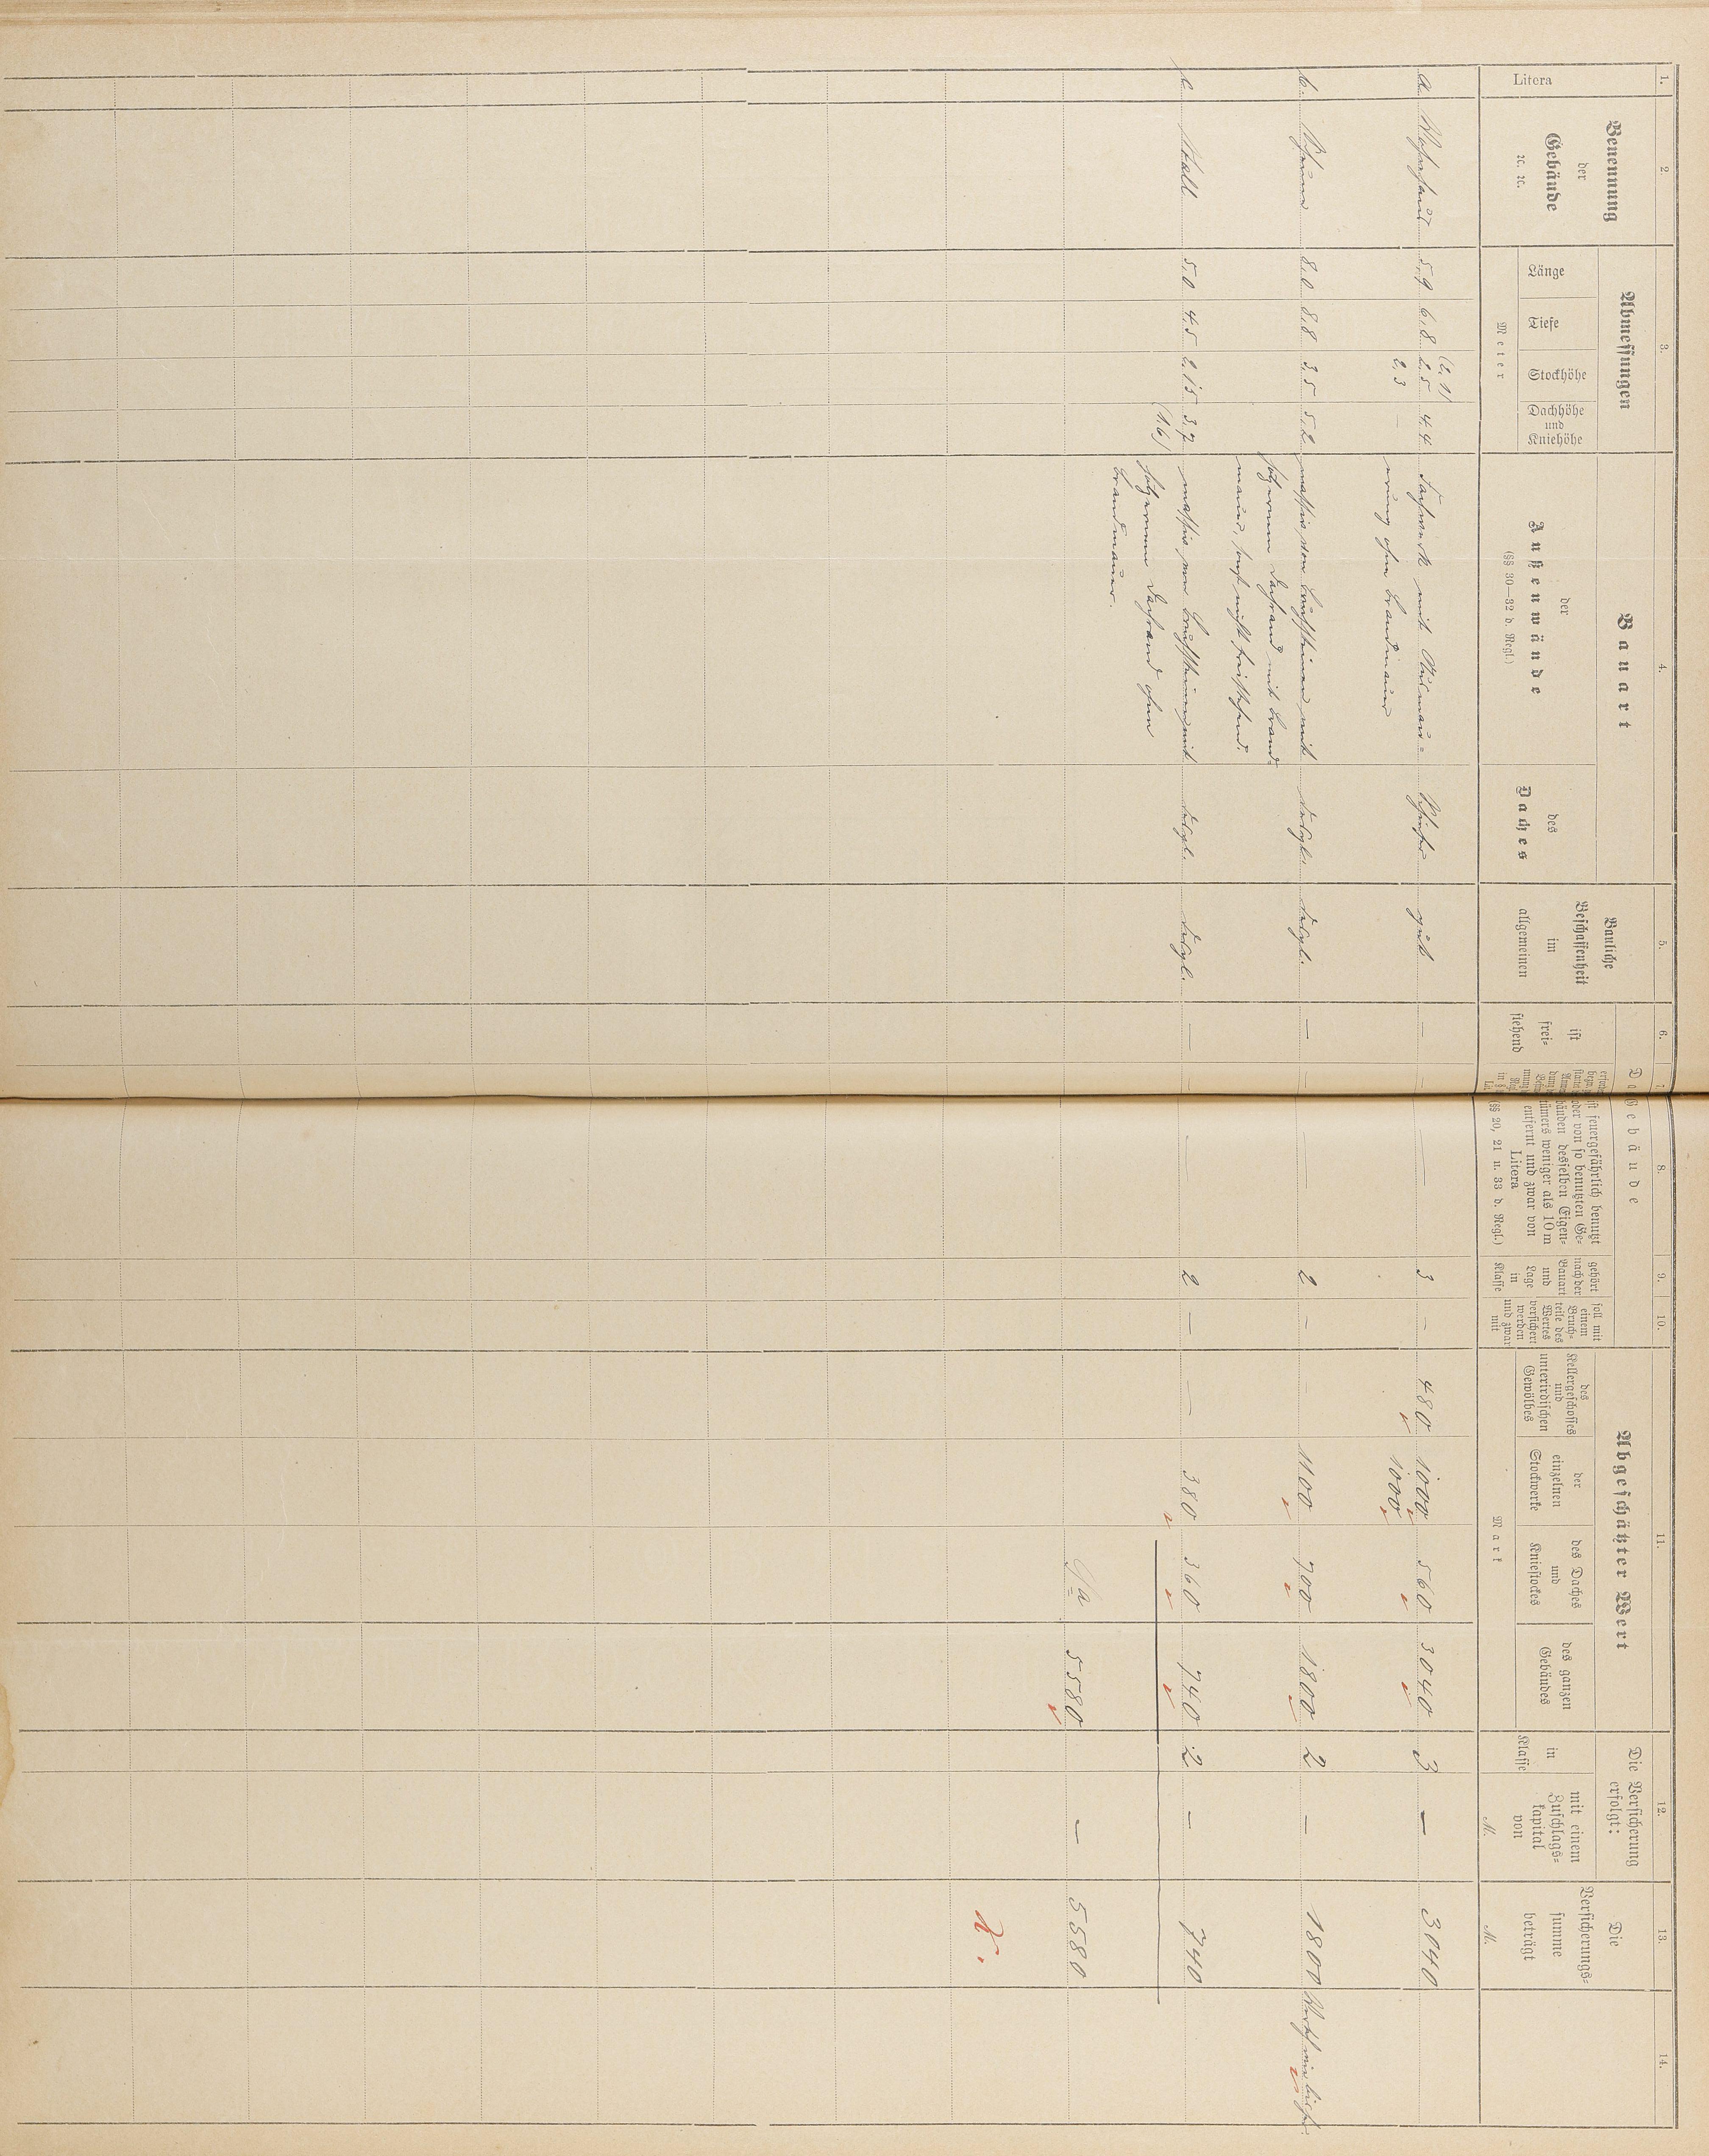 1. 2. 3. 4. 5. 6. 7. 8. 9. 10. 11. 12. 13. 14.
Litera
Benennung
der
Gebäude
ꝛc. ꝛc.
Abmessungen
Länge
Tiefe
Stockhöhe
Dachhöhe
und
Kniehöhe
Meter
Bauart
der
Außenwände
(§§ 30—32 d. Regl.)
des
Daches
Bauliche
Beschaffenheit
im
allgemeinen
Gebäude
ist
frei=
stehend
ist feuergefährlich benutzt
oder von so benutzten Ge=
bäuden desselben Eigen=
tümers weniger als 10 m
entfernt und zwar von
Litera
(§§ 20, 21 u. 33 d. Regl.)
gehört
nach der
Bauart
und
Lage
in
Klasse
soll mit
einem
Bruch=
teile des
Wertes
versichert
werden
und zwar
mit
Abgeschätzter Wert
des
Kellergeschosses
und
unterirdischen
Gewölbes
der
einzelnen
Stockwerke
des Daches
und
Kniestockes
des ganzen
Gebäudes
Mark
Die Versicherung
erfolgt:
in
Klasse
mit einem
Zuschlags=
kapital
von
M.
Die
Versicherungs=
summe
beträgt
M.
(2,1)
a. Wohnhaus 5,9 6,8 2,5 4,4 Fachwerk mit Ausmau= Schiefer gut — — 3 — 480 1000 560 3040 3 — 3040
2,3 — erung ohne Brandmauer 1000
b. Scheune 8,0 8,8 3,5 5,2 massiv von Bruchsteinen mit desgl. desgl. — — 2 — 1100 700 1800 2 — 1800
hölzernem Dachrand mit Brand=
mauer, sonst nicht freistehend.
c Stall 5,0 4,5 2,15 3,7 massiv von Bruchsteinen mit desgl. desgl. — — 2 — — 380 360 740 2 — 740
(1,6) hölzernem Dachrand ohne
Brandmauer.
S/a 5580 — 5580